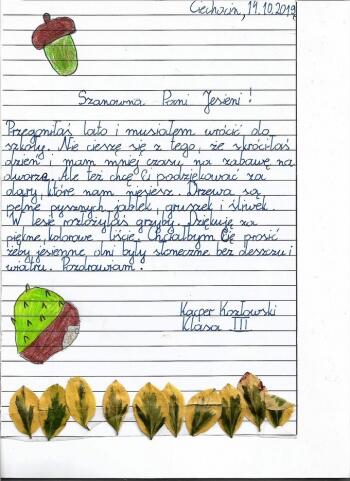 Ciechocin, 14.10.2019
Szanowna Pani Jesieni!
Przegoniłaś lato i musiałem wrócić do
szkoły. Nie cieszę się z tego, że skróciłaś
dzień i mam mniej czasu na zabawę na
dworze. Ale też chcę Ci podziękować za
dary, które nam niesiesz. Drzewa są
pełne pysznych jabłek, gruszek i śliwek.
W lesie rozłożyłaś grzyby. Dziękuję za
piękne, kolorowe liście. Chciałbym Cię prosić
żeby jesienne dni były słoneczne bez deszczu i
wiatru. Pozdrawiam.
Kacper Kozłowski
Klasa III